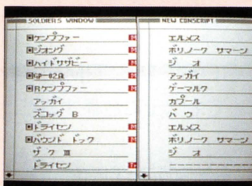 SOLDIERS WINDOW
ケンプファー
ジオング
ハイドラザビー
Rケンプファー
アッガイ
ズゴック B
ドライセン
バウンド ドック
ザク III
ドライセン
NEW CONSCRIPT
エルメス
ボリノーク サマーン
ジ オ
アッガイ
ゲーマルク
カプール
バウ
エルメス
ボリノーク サマーン
ジ オ